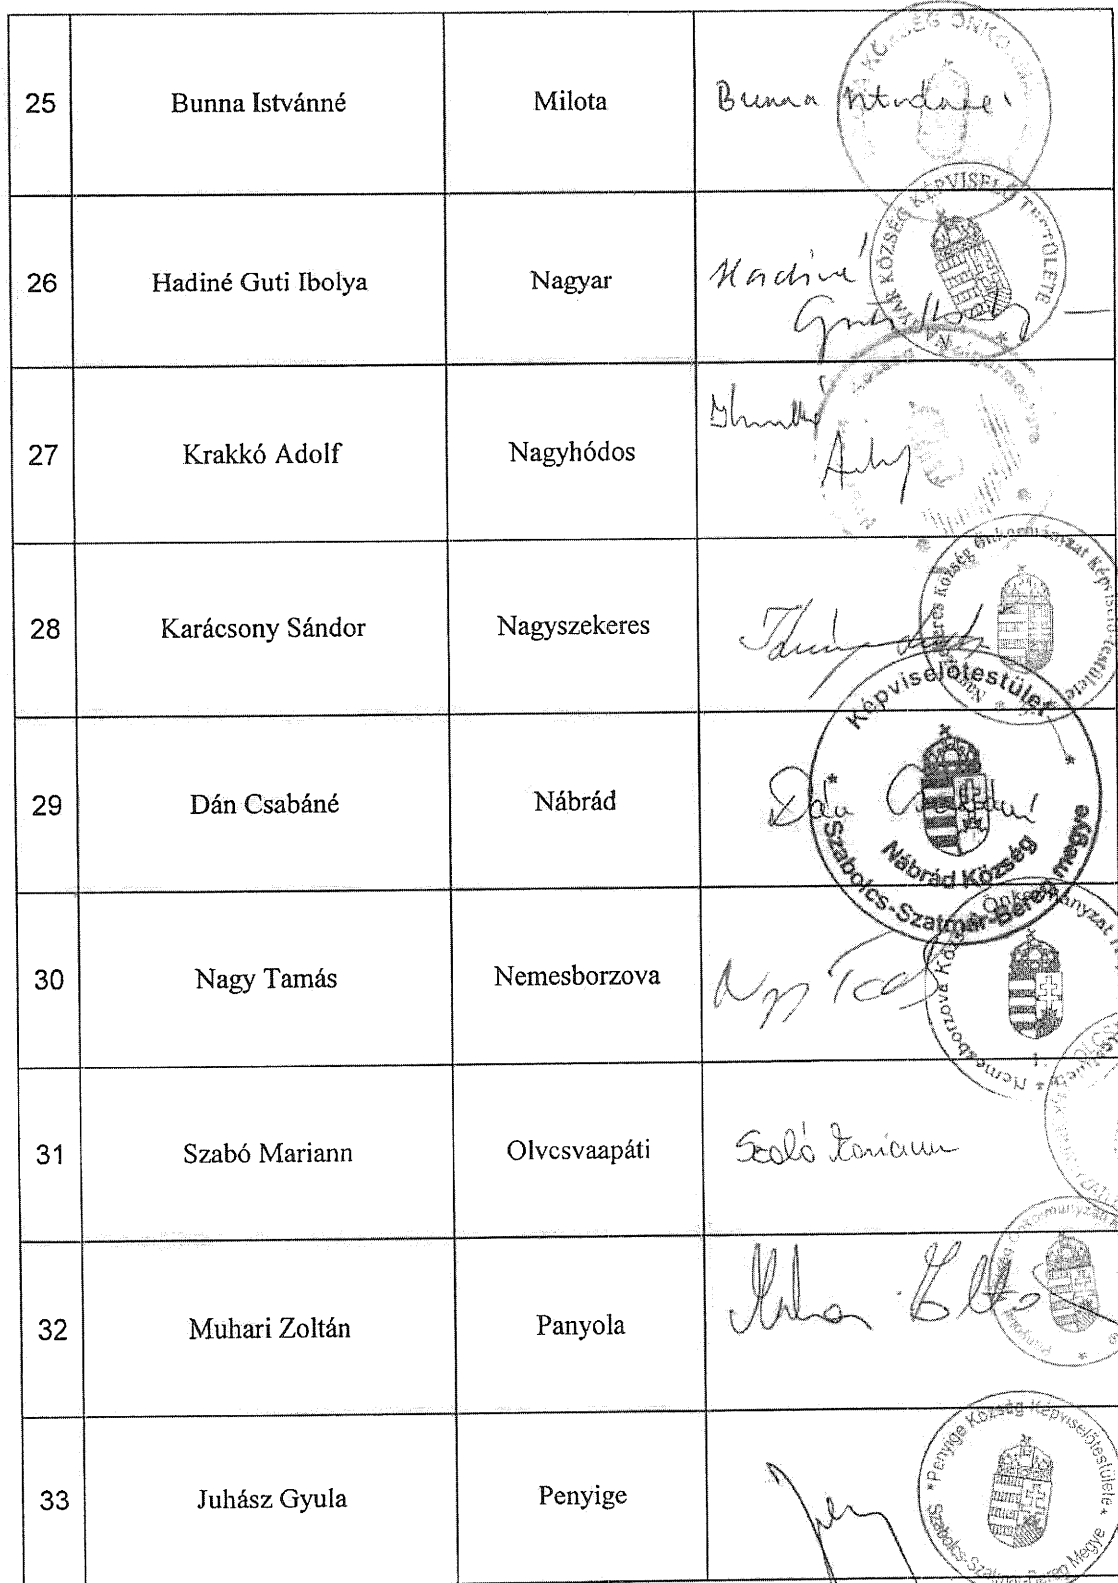 25 Bunna Istvánné Milota Bunna Istvánné
KÖZSÉG ÖNKO
26 Hadiné Guti Ibolya Nagyar Hadiné
Guti Ibolya
NAGYAR KÖZSÉG KÉPVISELŐ TESTÜLETE *
27 Krakkó Adolf Nagyhódos
28 Karácsony Sándor Nagyszekeres
Község Önkormányzat Képviselő-testülete
29 Dán Csabáné Nábrád Dán Csabáné
Képviselőtestület
* Szabolcs-Szatmár-Bereg megye *
Nábrád Község
30 Nagy Tamás Nemesborzova Nagy Tamás
* Nemesborzova Község Önkormányzat
31 Szabó Mariann Olvcsvaapáti Szabó Mariann
32 Muhari Zoltán Panyola
33 Juhász Gyula Penyige
*Penyige Község Képviselőtestülete*
Szabolcs-Szatmár-Bereg Megye